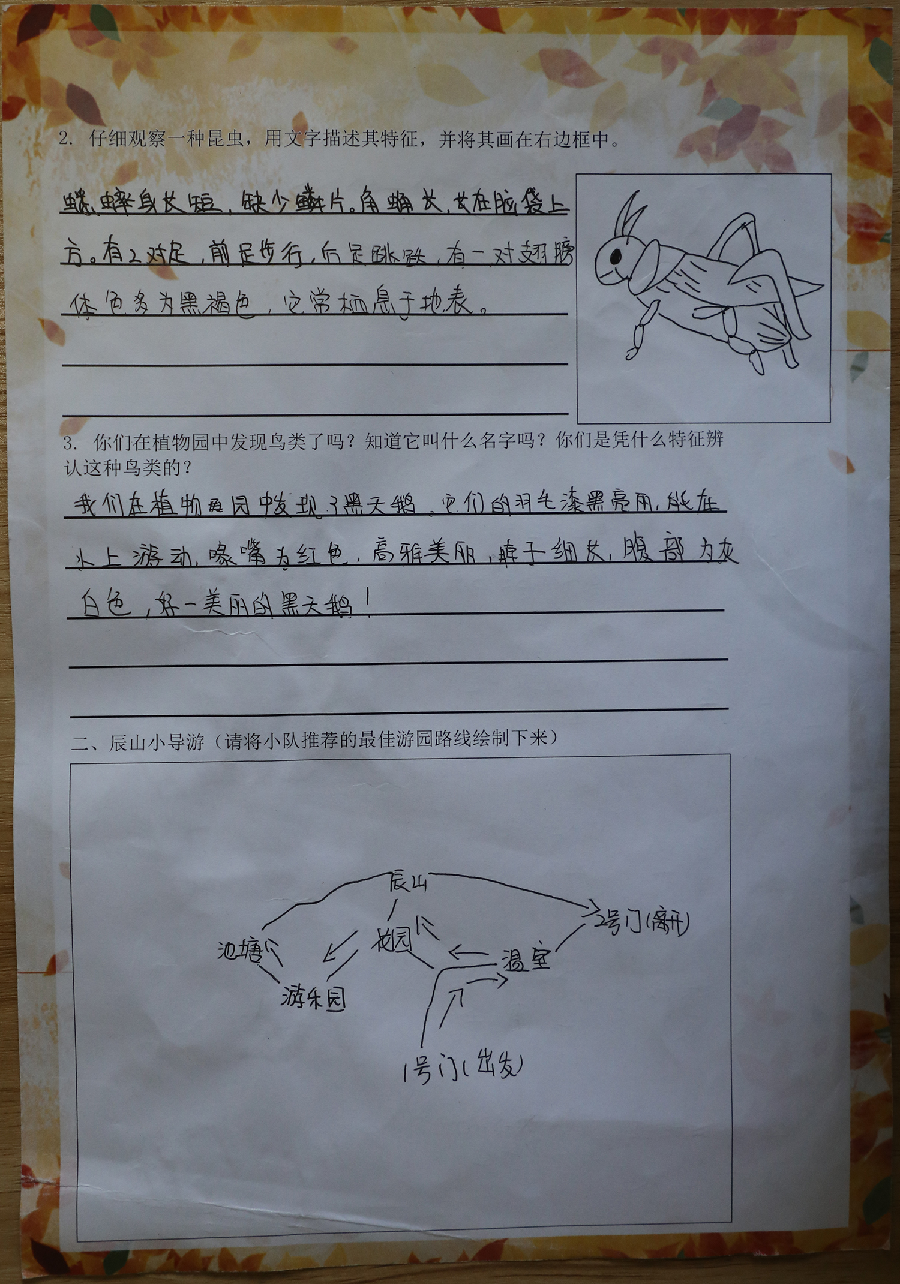 2. 仔细观察一种昆虫，用文字描述其特征，并将其画在右边框中。
蟋蟀身长短，缺少鳞片。角蛹长，长在脑袋上
方。有2对足，前足步行，后足跳跃，有一对翅膀
体色多为黑褐色，它常栖息于地表。
3. 你们在植物园中发现鸟类了吗？知道它叫什么名字吗？你们是凭什么特征辨
认这种鸟类的？
我们在植物园中发现了黑天鹅，它们的羽毛漆黑亮丽，能在
水上游动，喙嘴为红色，高雅美丽，脖子细长，腹部为灰
白色，好一美丽的黑天鹅！
二、辰山小导游（请将小队推荐的最佳游园路线绘制下来）
辰山
2号门(离开)
池塘
花园
温室
游乐园
1号门(出发)